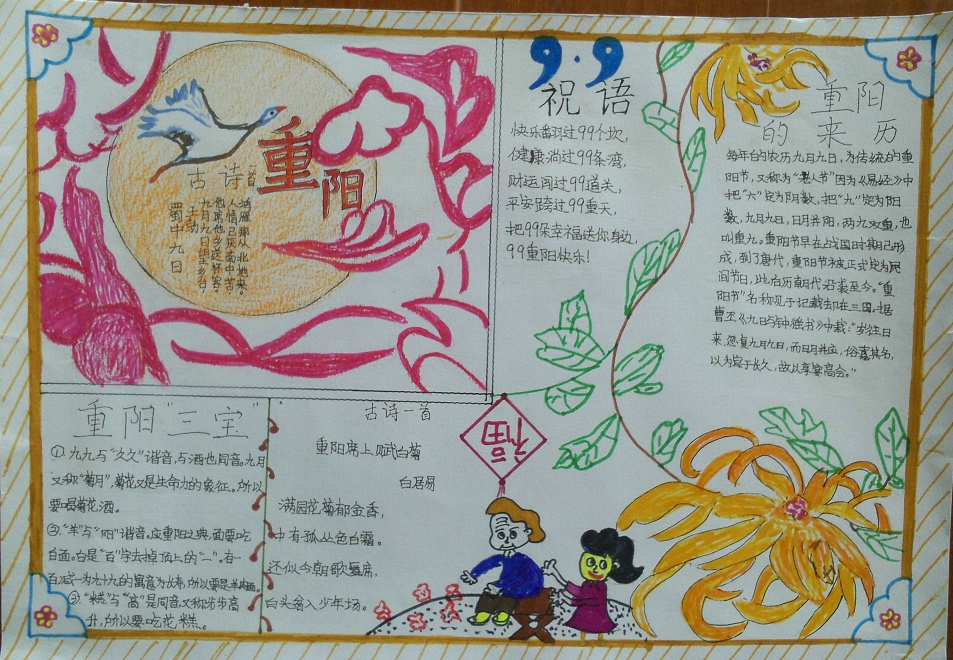 重阳
古诗一首
蜀中九日
王勃
九月九日望乡台，
他席他乡送客杯。
人情已厌南中苦，
鸿雁那从北地来。
9.9
祝语
快乐翻过99个坎，
健康淌过99条湾，
财运闯过99道关，
平安跨过99重天，
把99朵幸福送你身边，
99重阳快乐！
重阳
的来历
每年的农历九月九日，为传统的重
阳节，又称为"老人节"因为《易经》中
把"六"定为阴数，把"九"定为阳
数，九月九日，日月并阳，两九双重，也
叫重九。重阳节早在战国时期已形
成，到了唐代，重阳节被正式定为民
间节日，此后历朝代沿袭至今。"重
阳节"名称见于记载却在三国。据
曹丕《九日与钟繇书》中载："岁往月
来，忽复九月九日，而日月并应，俗嘉其名，
以为宜于长久，故以享宴高会。"
重阳"三宝"
①九九与"久久"谐音，与酒也同音。九月
又称"菊月"，菊花又是生命力的象征。所以
要喝菊花酒。
②"羊"与"阳"谐音。应重阳之典。面要吃
白面。白是"百"字去掉顶上的"一"。有一
百减一为九十九的寓意为长寿，所以要是羊肉面。
③"糕"与"高"是同音又称步步高
升，所以要吃花糕。
古诗一首
重阳席上赋白菊
白居易
满园花菊郁金香，
中有孤丛色白霜。
还似今朝歌舞席，
白头翁入少年场。
福